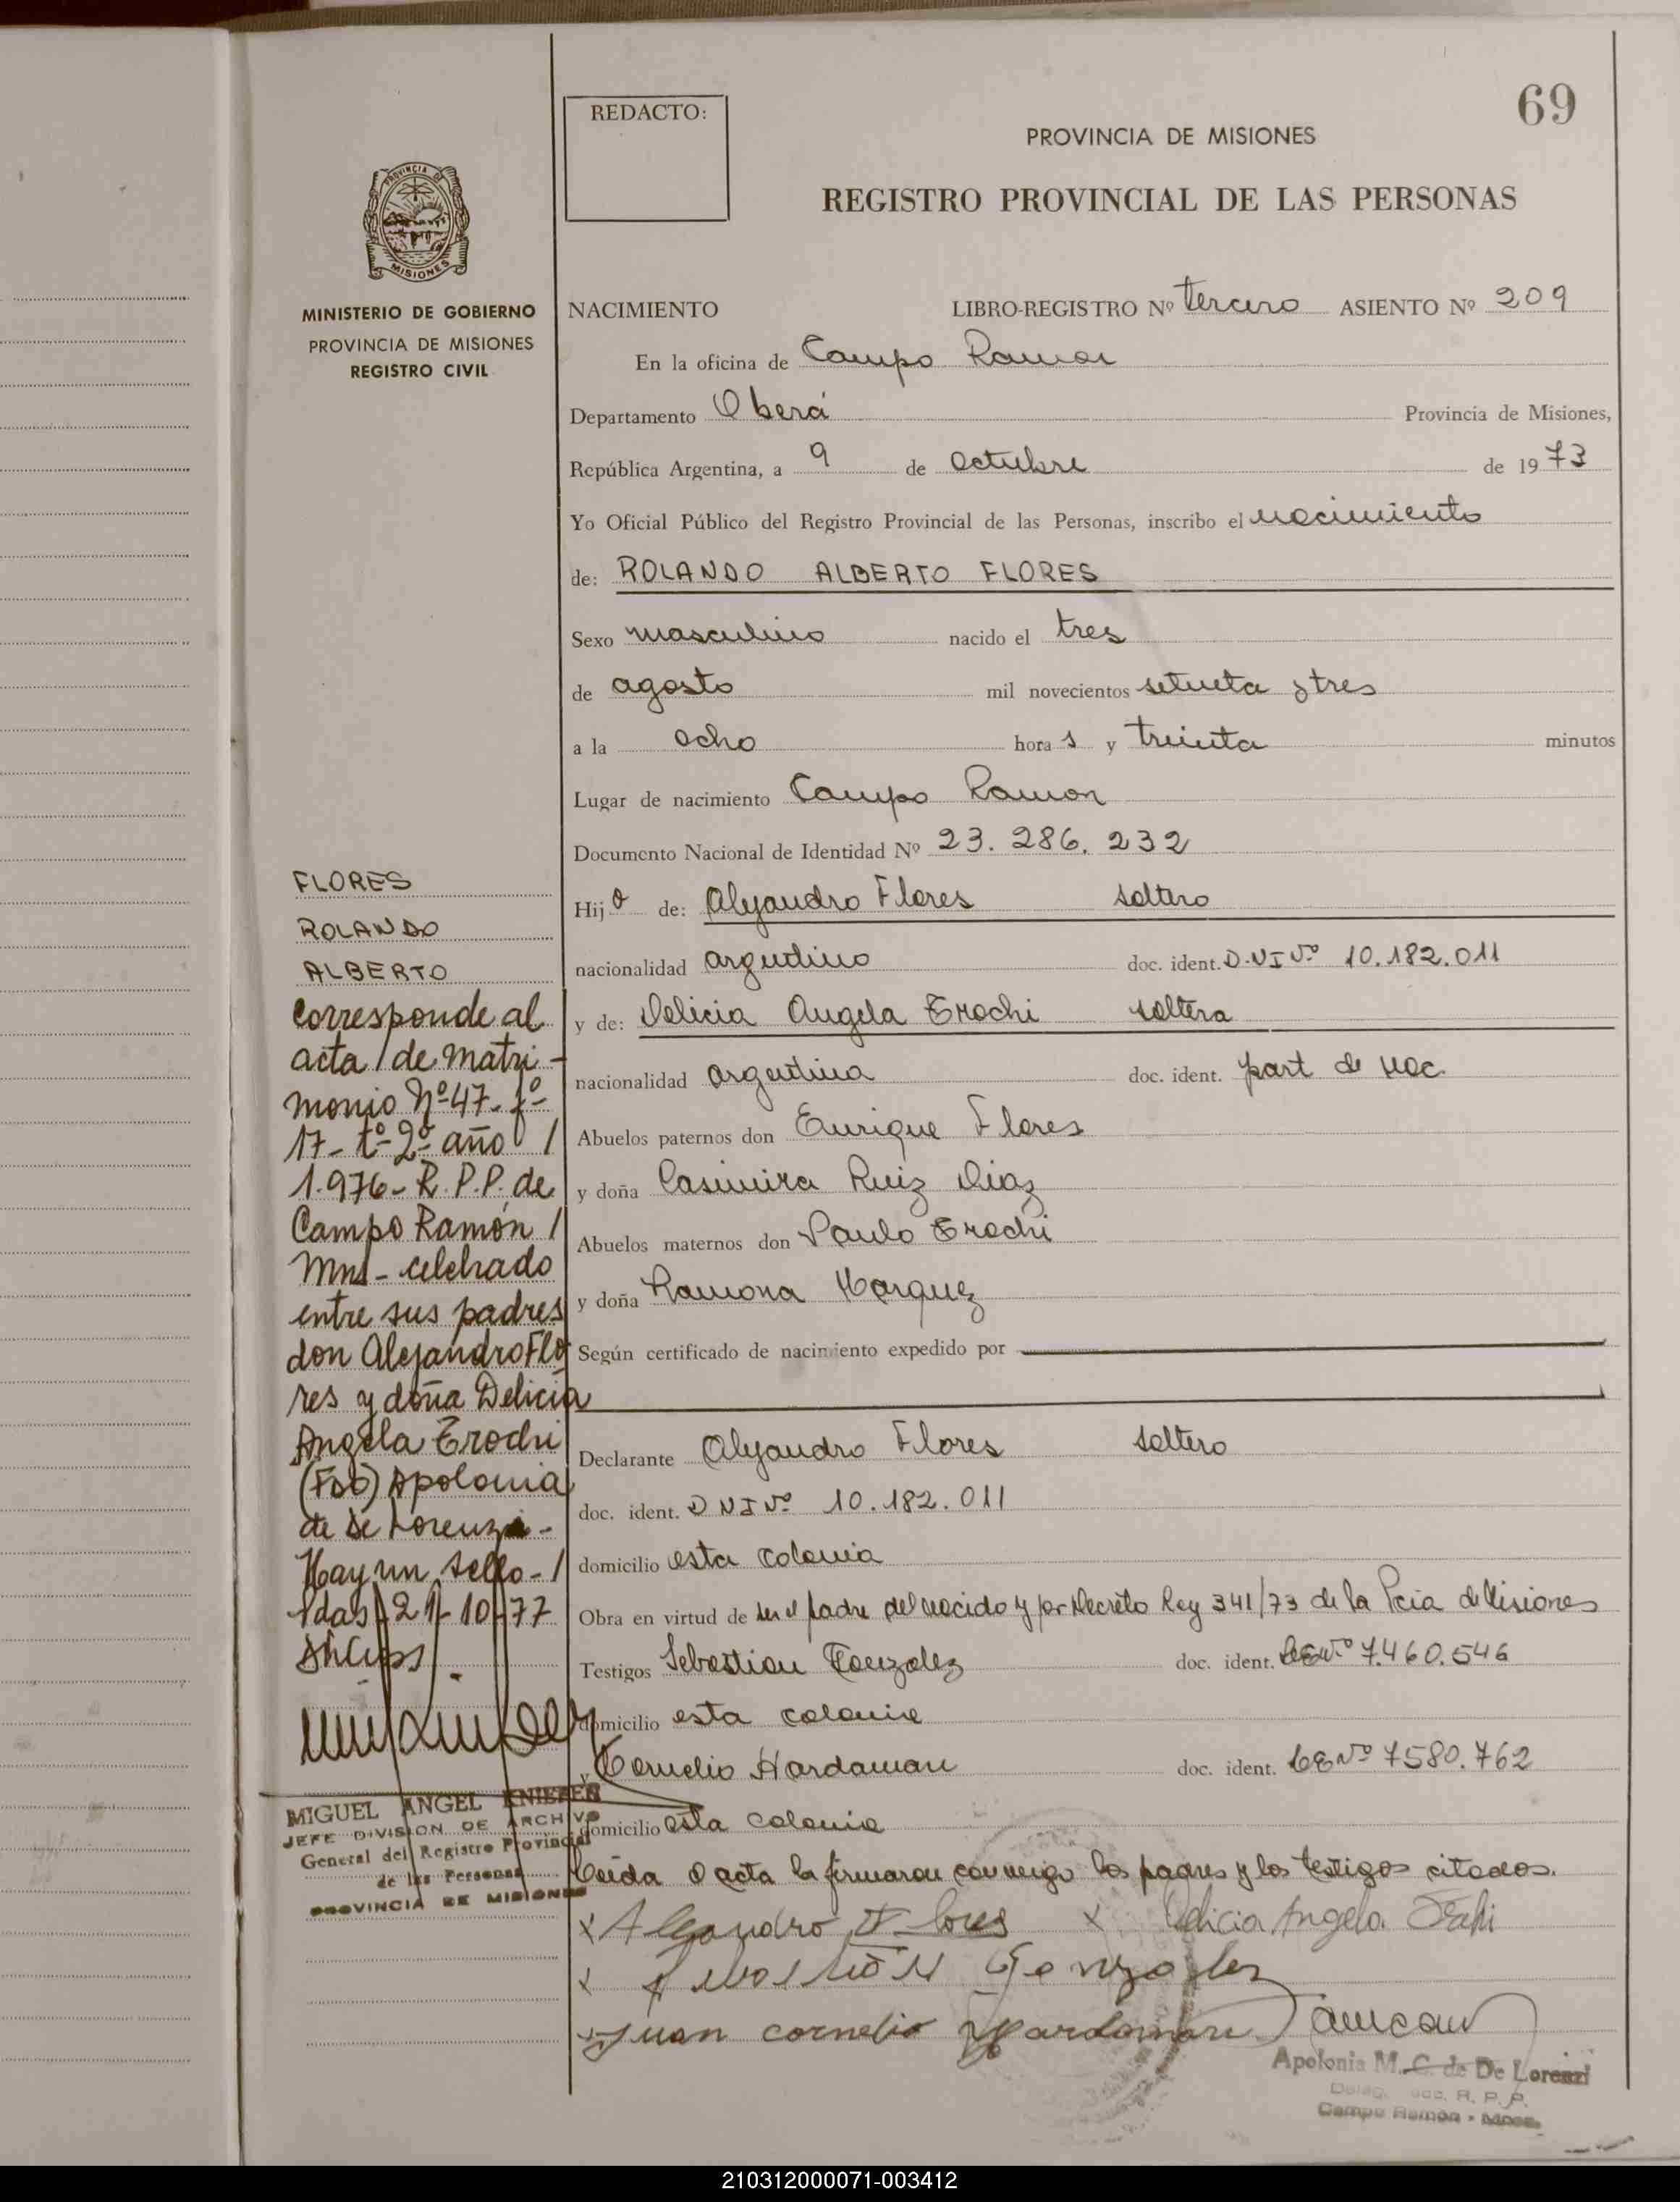 69
REDACTO:
PROVINCIA DE MISIONES
REGISTRO PROVINCIAL DE LAS PERSONAS
PROVINCIA DE
MISIONES
MINISTERIO DE GOBIERNO
PROVINCIA DE MISIONES
REGISTRO CIVIL
NACIMIENTO LIBRO-REGISTRO Nº tercero ASIENTO Nº 209
En la oficina de Campo Ramon
Departamento Oberá Provincia de Misiones,
República Argentina, a 9 de octubre de 1973
Yo Oficial Público del Registro Provincial de las Personas, inscribo el nacimiento
de: ROLANDO ALBERTO FLORES
Sexo masculino nacido el tres
de agosto mil novecientos setenta y tres
a la ocho horas y treinta minutos
Lugar de nacimiento Campo Ramon
Documento Nacional de Identidad Nº 23.286.232
Hijo de: Alejandro Flores soltero
nacionalidad argentino doc. ident. D.N.I Nº 10.182.011
y de: Delicia Angela Erochi soltera
nacionalidad argentina doc. ident. part de nac.
Abuelos paternos don Enrique Flores
y doña Casimira Ruiz Diaz
Abuelos maternos don Paulo Erochi
y doña Ramona Marquez
Según certificado de nacimiento expedido por
Declarante Alejandro Flores soltero
doc. ident. D N I Nº 10.182.011
domicilio esta colonia
Obra en virtud de ser el padre del nacido y por Decreto Ley 341/73 de la Pcia de Misiones
Testigos Sebastian Gonzalez doc. ident. LE Nº 7.460.546
domicilio esta colonia
y Cornelio Hardaman doc. ident. LE Nº 7580.762
domicilio esta colonia
Leida el acta la firmaron conmigo los padres y los testigos citados.
x Alejandro Flores x Delicia Angela
x Sebastián Gonzalez
x Juan cornelio
Apolonia M. C. de De Lorenzi
R. P. P.
Campo Ramón - Mnes.
FLORES
ROLANDO
ALBERTO
Corresponde al
acta / de matri-
monio Nº 47- fº
17- tº 2º año /
1.976- R. P.P. de
Campo Ramón /
Mns- celebrado
entre sus padres
don Alejandro Flo
res y doña Delicia
Angela Erochi
(Fdo) Apolonia
de De Lorenzi-
Hay un sello- /
Pdas- 21-10-77
MIGUEL ANGEL KNIEPER
JEFE DIVISION DE ARCHIVO
General del Registro Provincial
de las Personas
PROVINCIA DE MISIONES
210312000071-003412